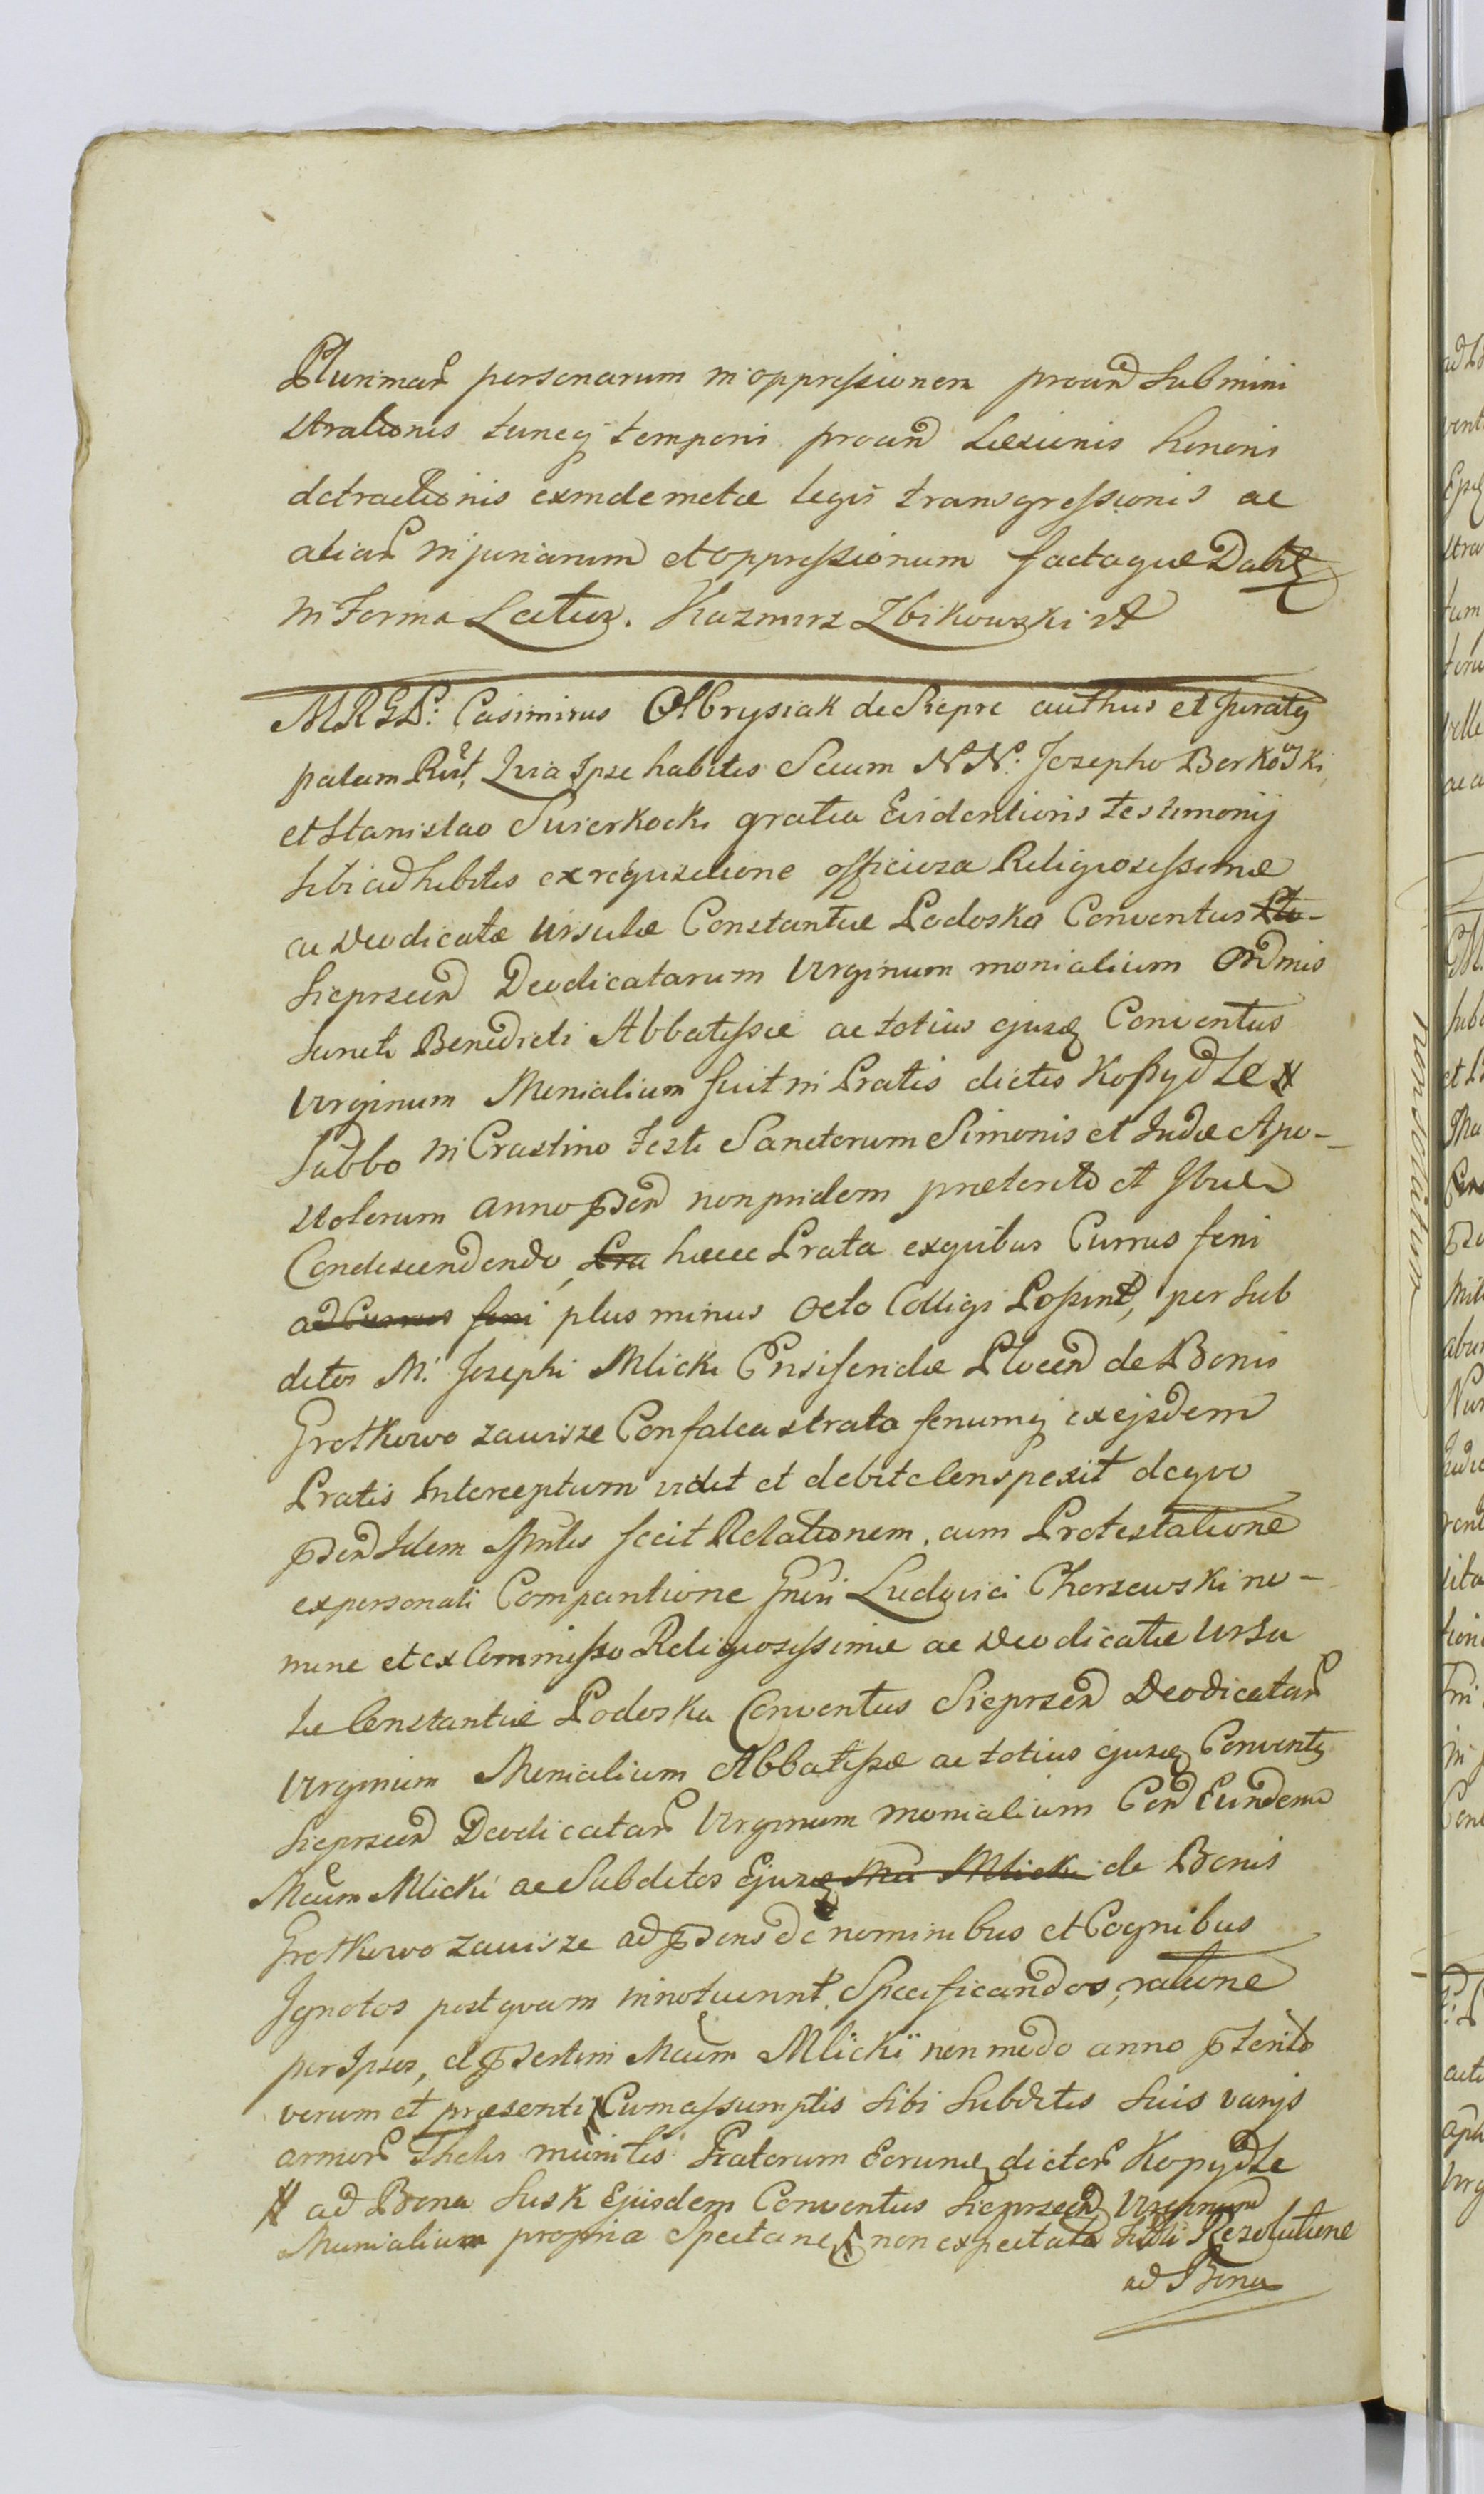 Plurimar personarum in oppressionem procund submini
strationis tuneq tempori procund Læsionis honoris
detractionis exinde metæ legis transgressionis ac
aliar injuriarum et oppressionum factaque Dabit
in Forma Latius. Kazmirz Zbikowski
MRGD: Casimirus Olbrysiak de Siepre authus et Juratq
palam Rts, Quia Ipse habitis Secum NN. Josepho Borkoski
et Stanislao Swierkocki gratia Evidentioris testimonij
sibi adhibitis ex requisitione officiosa Religiosissimæ
ac Deodicatæ Ursulæ Constantiæ Podoska Conventus Plo-
Sieprscen Deodicatarum Virginum monialium Ordinis
Sancti Benedicti Abbatissæ ac totius ejusq Conventus
Virginum Monialium fuit in Pratis dictis Kopydłe #
Sabbo in Crastino Festi Sanctorum Simonis et Judæ Apo-
stolorum anno pnsen non pridem præterito et Ibue
Condescendendo, Pra hæcce Prata ex quibus Currus feni
ad Currus feni plus minus octo Colligi Possint, per sub
ditos M. Josephi Mlicki Ensiferidæ Plocen de Bonis
Grotkowo zawisze Confalcastrata fenumq ex ejsdem
Pratis Interceptum vidit et debite Conspexit de quo
psen Idem Mntlis fecit Relationem, cum Protestatione
ex personali Comparitione Gnsi Ludovici Chorzewski no-
mine et ex Commisso Religiosissimæ ac Deodicatæ Ursu
læ Constantiæ Podoska Conventus Sieprscen Deodicatar
Virginum Monialium Abbatissæ ac totius ejusq Conventq
Sieprscen Deodicatar Virginum monialium Con Eundem
Mcum Mlicki ac Subditos Ejusq Mci Mlicki de Bonis
Grotkowo zawisze ad psens de nominibus et Cognibus
Ignotos postquam innotuerint Specificandos, ratione
per Ipsos, et psertim Mcum Mlicki non modo anno pterito
verum et præsenti Cum assumptis sibi subditis suis varijs
armor Thelis munitis Pratorum Eorunq dictor Kopydłe
# ad Bona Susk Ejusdem Conventus Sieprscen Virginum
Monialium propria Spectane non expectata Rezolutione
ad Bona